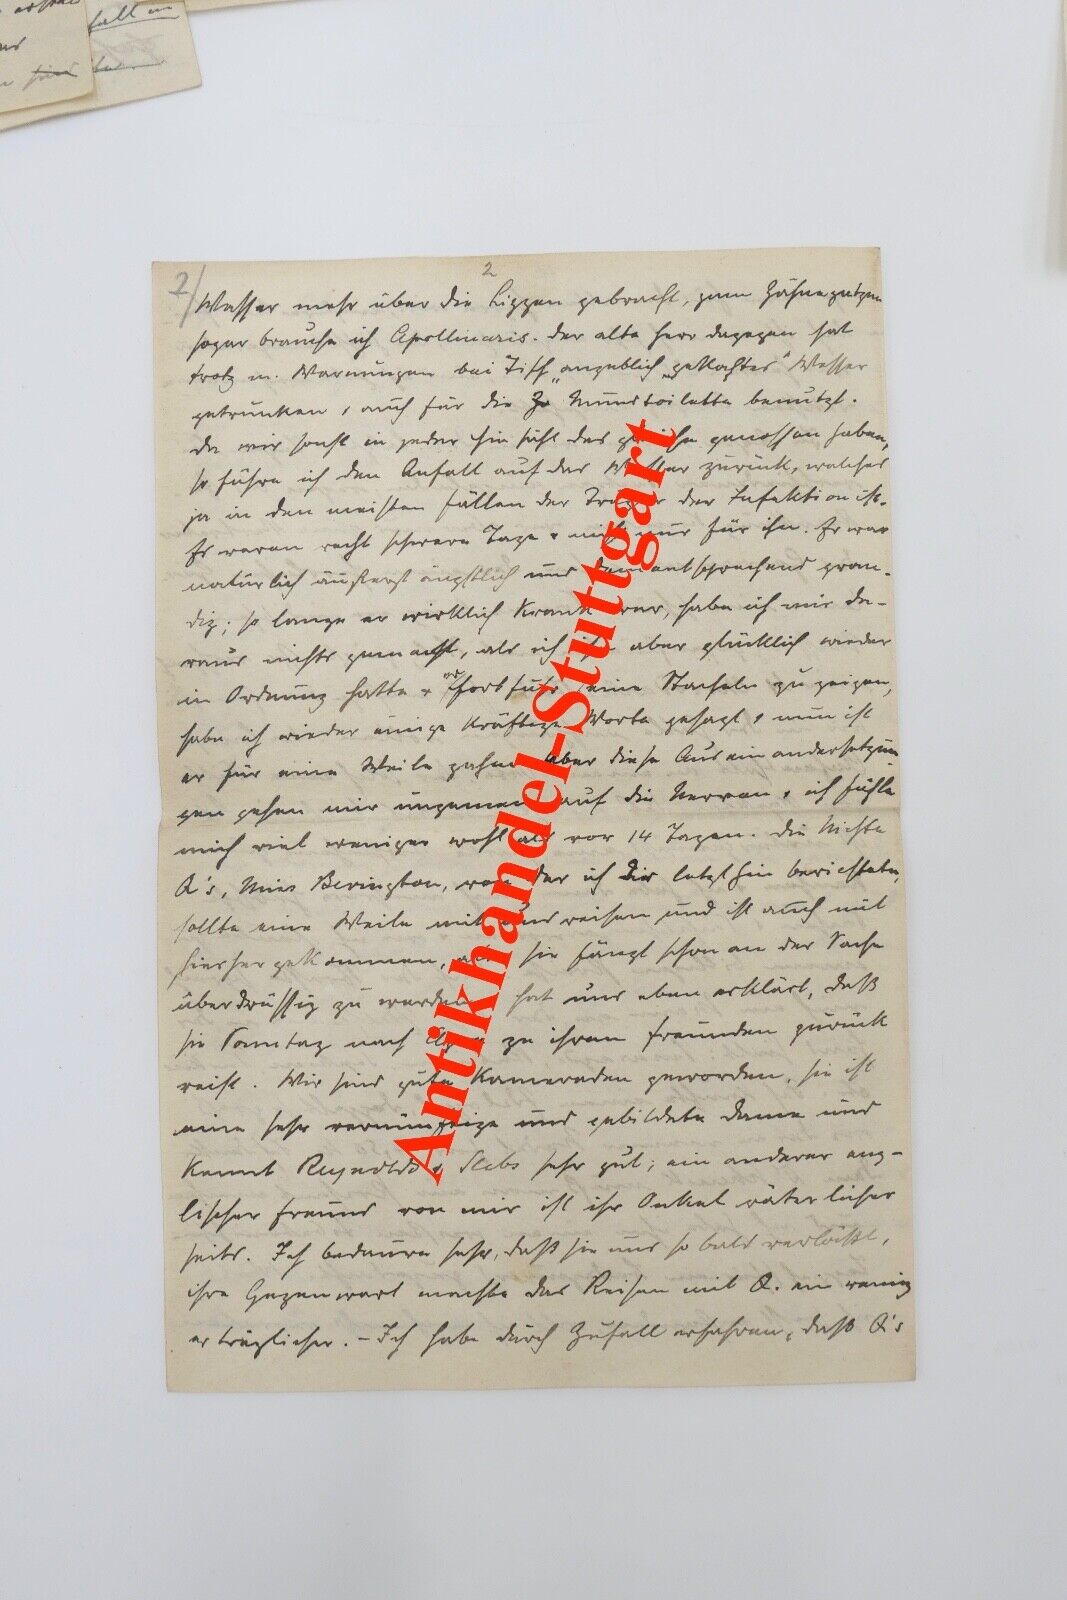 2/
2
Wasser mehr über die Lippen gebracht, zum Zähneputzen
sogar brauche ich Apollinaris. Der alte Herr dagegen hat
trotz m. Warnungen bei Tisch „angeblich „gekochtes“ Wasser
getrunken & auch für die Mundtoilette benutzt.
Da wir sonst in jeder Hinsicht das gleiche genossen haben,
so führe ich den Anfall auf das Wasser zurück, welches
ja in den meisten Fällen der Träger der Infektion ist.
Es waren recht schwere Tage & nicht nur für ihn. Er war
natürlich äußerst ängstlich und dementsprechend gran-
tig; so lange er wirklich krank war, habe ich mir da-
raus nichts gemacht, als ich ihn aber glücklich wieder
in Ordnung hatte & er fortfuhr seine Stacheln zu zeigen,
habe ich wieder einige kräftige Worte gesagt & nun ist
er für eine Weile zahm. Aber diese Auseinandersetzun
gen gehen mir ungemein auf die Nerven & ich fühle
mich viel weniger wohl als vor 14 Tagen. Die Nichte
Q's, Miss Bevington, von der ich Dir letzthin berichtete,
sollte eine Weile mit uns reisen und ist auch mit
hierher gekommen, aber sie fängt schon an der Sache
überdrüssig zu werden & hat uns eben erklärt, daß
sie Sonntag nach zu ihren Freunden zurück
reist. Wir sind gute Kameraden geworden, sie ist
eine sehr vernünftige und gebildete Dame und
kennt Reynolds & sehr gut; ein anderer eng-
lischer Freund von mir ist ihr Onkel väterlicher
seits. Ich bedaure sehr, daß sie uns so bald verläßt,
ihre Gegenwart machte das Reisen mit Q. ein wenig
erträglicher. – Ich habe durch Zufall erfahren, daß Q's
Antikhandel-Stuttgart